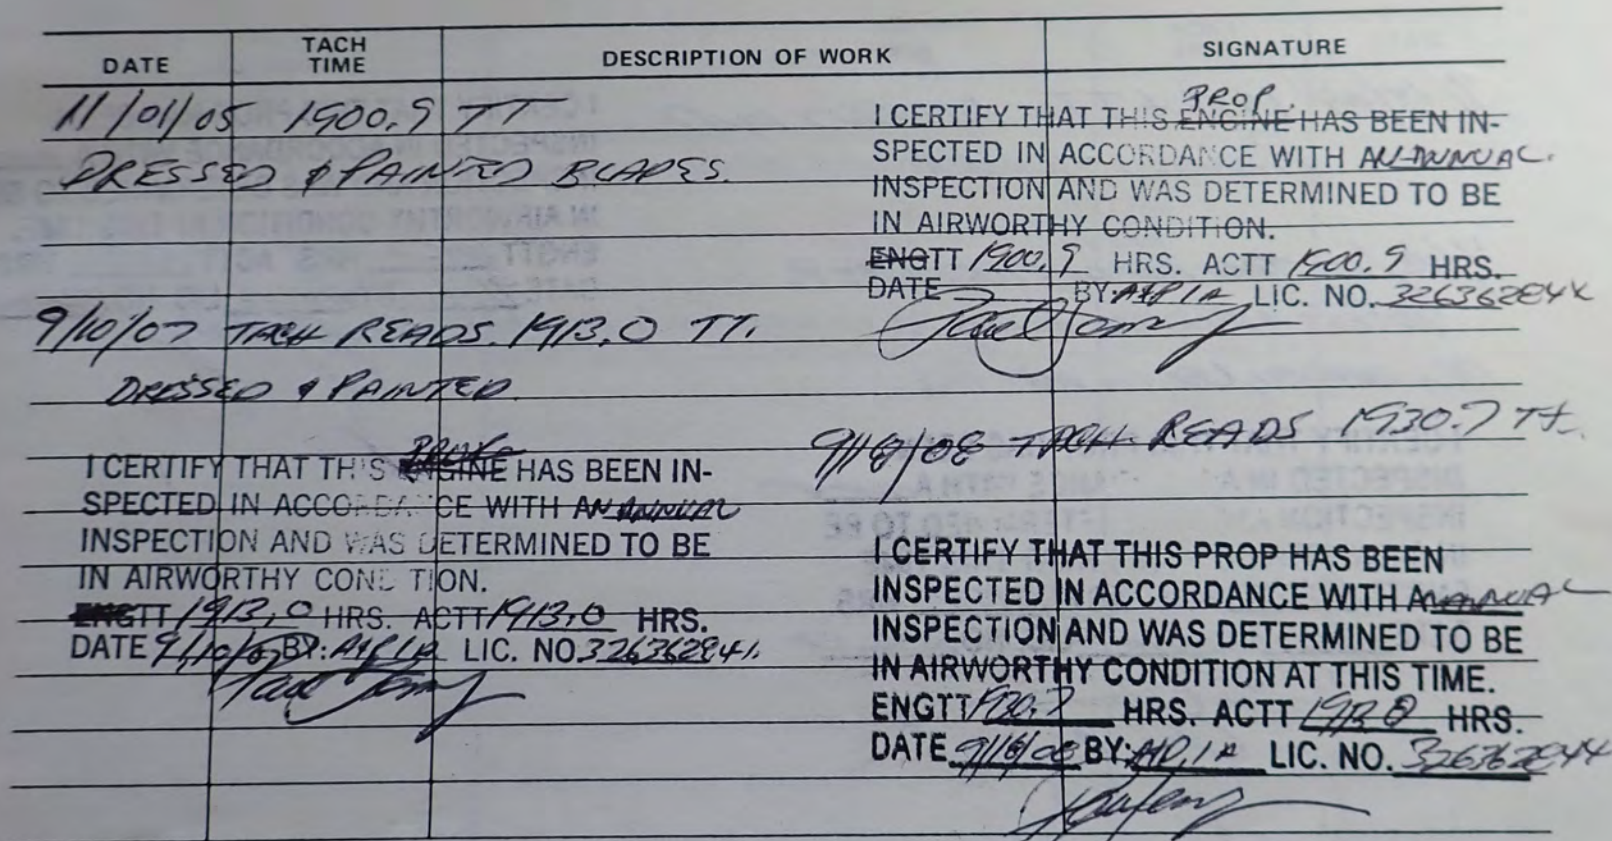 DATE TACH TIME DESCRIPTION OF WORK SIGNATURE
11/01/05 1900.9 TT
DRESSED & PAINTED BLADES.
PROP.
I CERTIFY THAT THIS ENGINE HAS BEEN IN-
SPECTED IN ACCORDANCE WITH AN ANNUAL.
INSPECTION AND WAS DETERMINED TO BE
IN AIRWORTHY CONDITION.
ENGTT 1900.9 HRS. ACTT 1900.9 HRS.
DATE BY: A&P IA LIC. NO.
9/10/07 TACH READS. 1913.0 TT.
DRESSED & PAINTED.
I CERTIFY THAT THIS ENGINE HAS BEEN IN-
SPECTED IN ACCORDANCE WITH AN ANNUAL
INSPECTION AND WAS DETERMINED TO BE
IN AIRWORTHY CONDITION.
ENGTT 1913.0 HRS. ACTT 1913.0 HRS.
DATE 9/10/07 BY: A&P IA LIC. NO.
TACH READS 1930.7 TT.
I CERTIFY THAT THIS PROP HAS BEEN
INSPECTED IN ACCORDANCE WITH ANNUAL
INSPECTION AND WAS DETERMINED TO BE
IN AIRWORTHY CONDITION AT THIS TIME.
ENGTT 1930.7 HRS. ACTT HRS.
DATE BY: A&P, IA LIC. NO.